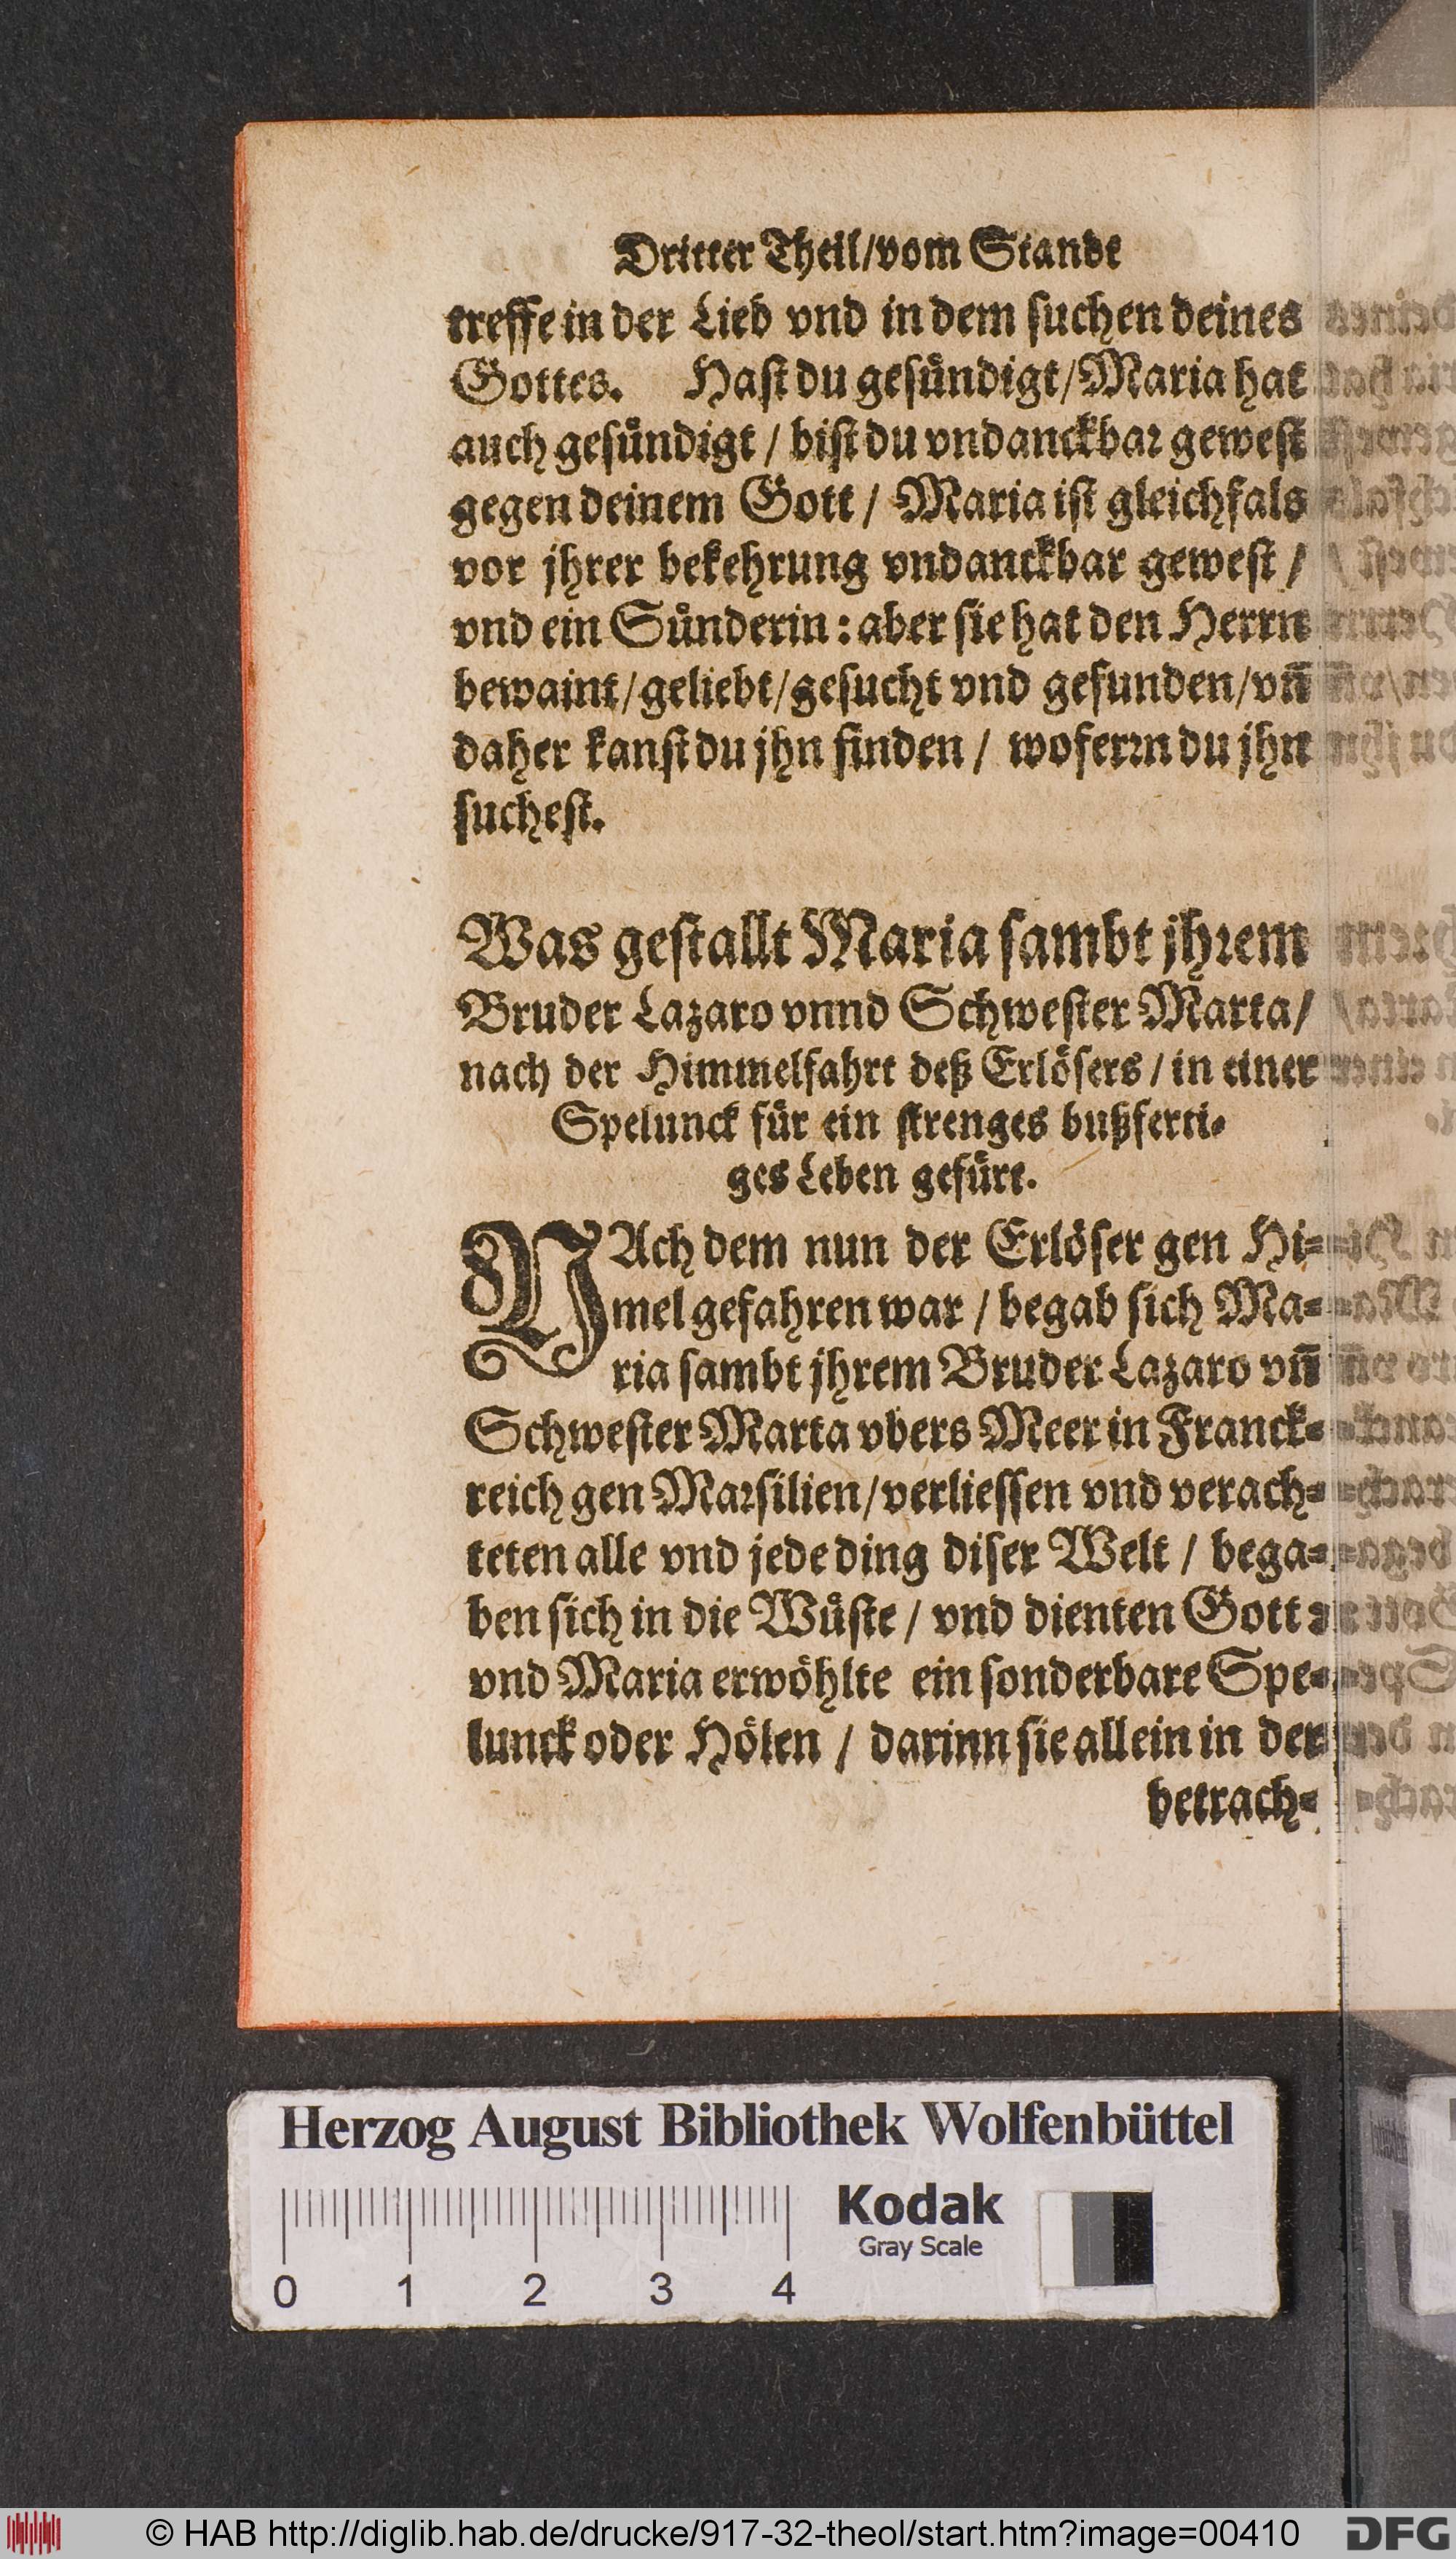 Dritter Theil/vom Stande
treffe in der Lieb vnd in dem suchen deines
Gottes. Hast du gesuͤndigt/Maria hat
auch gesuͤndigt / bist du vndanckbar gewest
gegen deinem Gott / Maria ist gleichfals
vor jhrer bekehrung vndanckbar gewest /
vnd ein Suͤnderin: aber sie hat den Herrn
bewaint/geliebt/gesucht vnd gefunden/vn̄
daher kanst du jhn finden / woferrn du jhn
suchest.
Was gestallt Maria sambt jhrem
Bruder Lazaro vnnd Schwester Marta/
nach der Himmelfahrt deß Erloͤsers / in einer
Spelunck fuͤr ein strenges bußferti-
ges Leben gefuͤrt.
NAch dem nun der Erloͤser gen Hi-
mel gefahren war / begab sich Ma-
ria sambt jhrem Bruder Lazaro vn̄
Schwester Marta vbers Meer in Franck-
reich gen Marsilien/verliessen vnd verach-
teten alle vnd jede ding diser Welt / bega-
ben sich in die Wuͤste / vnd dienten Gott:
vnd Maria erwoͤhlte ein sonderbare Spe-
lunck oder Hoͤlen / darinn sie allein in der
betrach-
Herzog August Bibliothek Wolfenbüttel
Kodak
Gray Scale
0 1 2 3 4
© HAB http://diglib.hab.de/drucke/917-32-theol/start.htm?image=00410
DFG